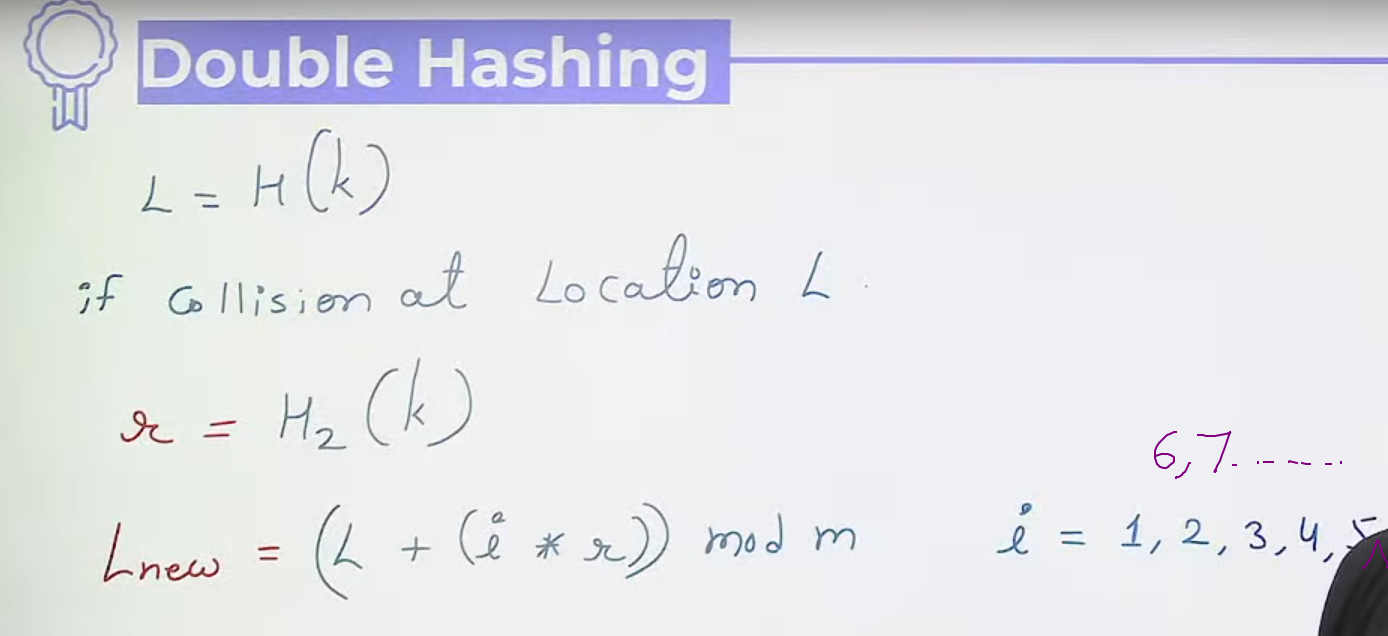 Double Hashing
L = H(k)
if collision at Location L.
r = H₂(k)
6, 7. -----
Lnew = (L + (i * r)) mod m    i = 1, 2, 3, 4, 5